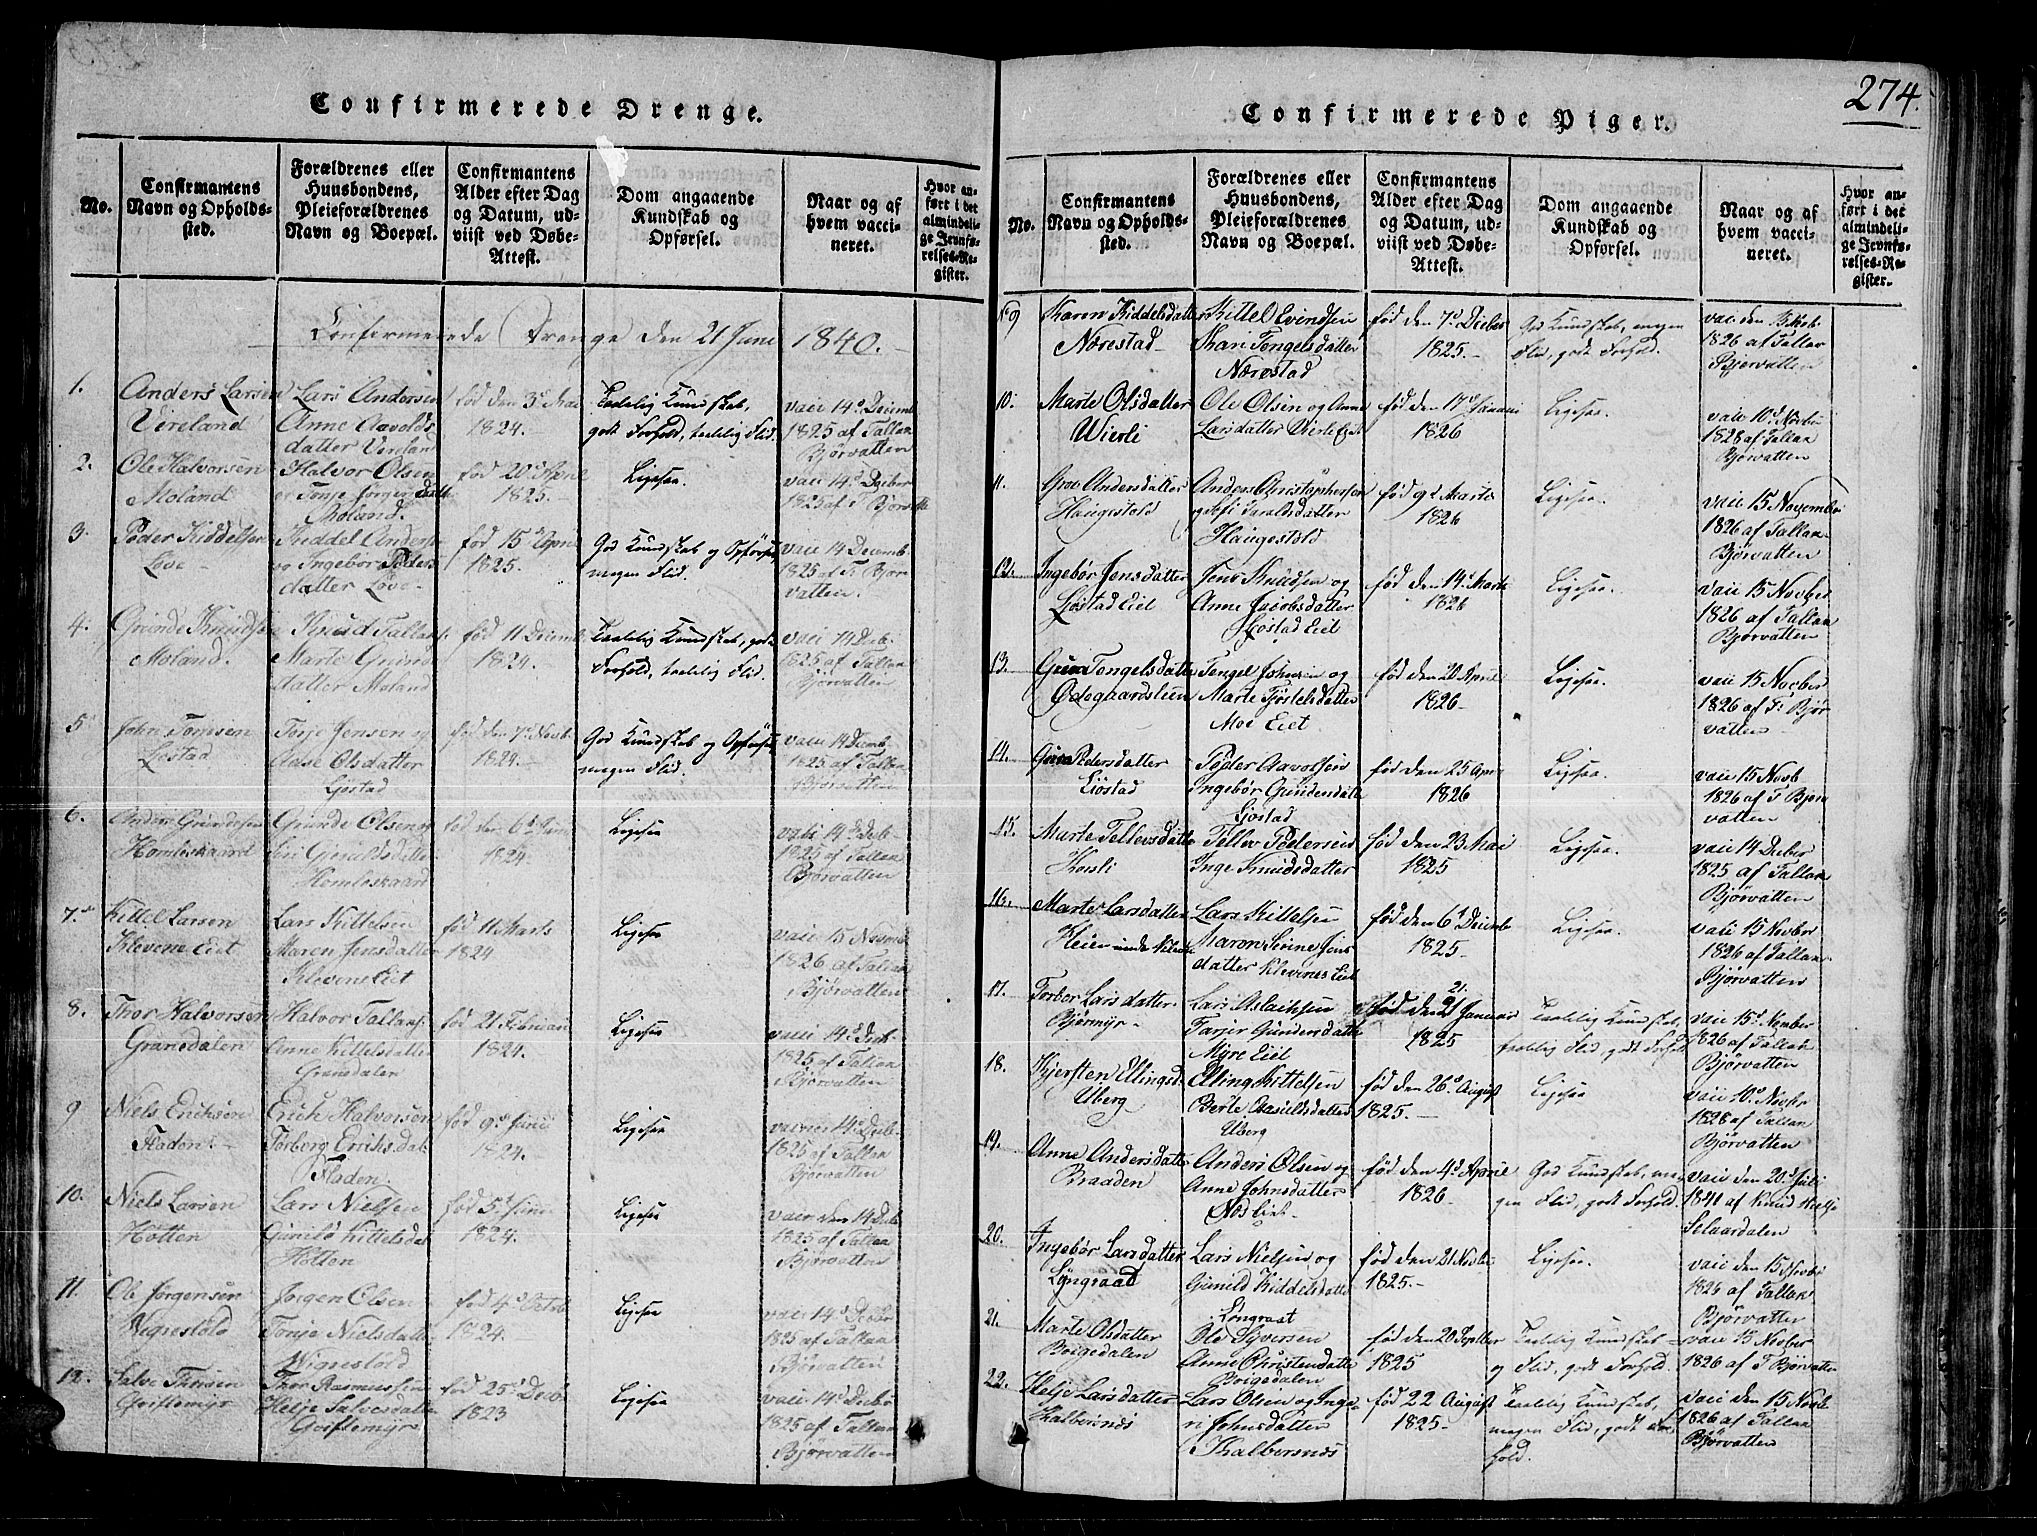 274.
Confirmerede Drenge.
No.
Confirmantens Navn og Opholdssted.
Forældrenes eller Huusbondens, Pleieforældrenes Navn og Boepæl.
Confirmantens Alder efter Dag og Datum, udviist ved Døbe-Attest.
Dom angaaende Kundskab og Opførsel.
Naar og af hvem vaccineret.
Hvor anført i det almindelige Jevnførelses-Register.
Confirmerede Drenge den 21 Juni 1840.
1.
Anders Larsen
Vireland
Lars Andersen
Anne Aavolds
datter Verland
fød den 3d Mai
1824.
Taalelig Kundskab,
godt Forhold, taalelig Flid.
vaci 14d Decemb
1825 af Tallan
Bjørvatten
2.
Ole Halvorsen
Moland
Halvor Olsen
Tonje Jørgensdatter
Moland.
fød 20d April
1825.
Ligesaa.
vaci 14d Decber
1825 af T Bjørvatten
3.
Peder Kiddelsen
Løve
Kiddel Anders
og Ingebor Peders
datter Løve
fød 15d April
1825.
God Kundskab og Opførsel,
megen Flid.
vaci 14 Decemb
1825 af T. Bjør
vatten.
4.
Grunde Knudsen
Moland.
Knud Tallans.
Marte Grund
datter Moland
fød 11 Decemb
1824.
Taalelig Kundskab, godt
Forhold, taalelig Flid.
vaci 14 Decb.
1825 af Tallan
Bjørvatten
5
John Tomsen
Løstad
Terje Jensen og
Aase Olsdatter
Ljøstad
fød den 7d Novb
1824.
God Kundskab og Opførsel,
megen Flid.
vaci 14 Decemb
1825 af Tallan
Bjørvatten
6.
Grundesen
Homleskaard
Grunde Olsen og
Siri Gjeruldsdatter
Hemleskaard
fød den 6d Juni
1824.
Ligesaa
vaci 14d Decb.
1825 af Tallan
Bjørvatten
7.
Kittel Larsen
Klevene Eiet
Lars Kittelsen
Maren Jensdatter
Klevene Eiet
fød 11 Marts
1824
Ligesaa
vaci 15 Novemb
1826 af Tallan
Bjørvatten
8.
Thor Halvorsen
Granedalen
Halvor Tallans.
Anne Kittelsdatter
Granedalen
fød 21 Februar
1824.
Ligesaa
vaci 14d Decb.
1825 af Tallan
Bjørvatten
9
Niels Erichsen
Fladen.
Erich Halvorsen
Torberg Eriksdat
Fladen.
fød 9d Juni
1824.
Ligesaa
14d Decb.
1825 af Tallan
Bjørvatten
10.
Niels Larsen
Hotten
Lars Nielsen
Gunild Kittelsdat
Hotten
fød 5d Juni
1824.
Ligesaa
vaci den 14 Decb
1825 af Tallan
Bjørvatten
11.
Ole Jørgensen
Wignestold
Jørgen Olsen
Tonje Nielsdatte
Wignestold
fød 4d Octob
1824.
Ligesaa
vaci 14d Decbr
1825 af Tallan
Bjørvatten
12.
Salve Thorsen
Giviftemyr
Thor Rasmussen
Helje Salvesdatter
Giviftemyr
fød 25d Decb
1823
Ligesaa
vaci 14d Decbr
1825 af Tallan
Bjørvatten
Confirmerede Piger.
No.
Confirmantens Navn og Opholdssted.
Forældrenes eller Huusbondens, Pleieforældrenes Navn og Boepæl.
Confirmantens Alder efter Dag og Datum, udviist ved Døbe-Attest.
Dom angaaende Kundskab og Opførsel.
Naar og af hvem vaccineret.
Hvor anført i det almindelige Jevnførelses-Register.
No 9
Karen Kiddelsdatter
Nærestad
Kittel Evindsen
Tengelsdatter
Nærestad
fød den 7d Decber
1825.
God Kundskab, megen
Flid, godt Forhold.
vac. den
1826 af Tallan
Bjørvatten
10.
Marte Olsdatter
Wierli
Ole Olsen og Anne
Larsdatter Vierli Eiet
fød den 17d Januari
1826
Ligesaa.
vaci 10d Novbr
1828 af Tallan
Bjørvatten
11.
Groe Andersdatter
Haugestold
Anders Christophersen
Taraldsdatter
Haugestold
fød 9d Marts
1826
Ligesaa.
vaci 15 November
1826 af Tallan
Bjørvatten
12.
Ingebor Jensdatter
Ljøstad Eiet
Jens Knudsen og
Anne Jacobsdatter
Ljøstad Eiet
fød den 14d Marts
1826
Ligesaa.
vaci 15 Novber
1826 af Tallan
Bjørvatten
13.
Guro Tengelsdatter
Ødegaardsleen
Tengel Johnsen og
Marte Tjøstelsdatter
Moe Eiet
fød den 20 April
1826
Ligesaa.
vaci 15 Novber
1826 af T. Bjør
vatten
14.
Guro Pedersdatter
Ljøstad
Peder Aavoldsen
Ingebor Gundersdatter
Ljøstad
fød den 25 Apri
1826
Ligesaa.
vaci 15 Novb
1826 af T Bjør
vatten
15.
Marte Tellevsdatter
Honsli
Tellev Pedersen
Inge Knudsdatter
fød den 23 Mai
1825
Ligesaa.
vaci 14 Decber
1825 af Tallan
Bjørvatten
16.
Marte Larsdatter
Lars Kittelsen
Maren Sirine Jens
datter Klevenes Eiet
fød den 6d Decemb
1825
Ligesaa.
vaci 15 Novber
1826 af Tallan
Bjørvatten
17.
Torbor Larsdatter
Bjørmyr
Lars Aslachsen
Tarjer Gundersdatter
Myre Eiet
21.
fød den 21 Januar
1825
Taalelig Kundskab,
taalelig Flid, godt Forhold
vaci 15d November
1826 af Tallan
Bjørvatten
18.
Kjersten Ellingsd.
Uberg
Elling Kittelsen
Berte Aasuldsdatter
Uberg
fød den 26d August
1825.
Ligesaa
vaci 10. Novbr
1828 af Tallan
Bjørvatten
19.
Anne Andersdatter
Braaden
Anders Olsen og
Anne Johnsdatter
Næs Eiet
fød den 4d April
1826
God Kundskab, me
gen Flid, godt Forhold.
vaci den 20d Juli
1841 af Knud
Selaardalen
20.
Ingebor Larsdatter
Lyngraat
Lars Nielsen og
Gunild Kiddelsdatter
Longraat
fød den 21 Novbr
1825.
Ligesaa.
vaci den 15 Novbr
1826 af Tallan
Bjørvatten
21.
Marte Olsdatter
Boigedalen
Ole Syversen
Anne Christensdatter
Boigedalen
fød den 20 Septber
1825
Taalelig Kundskab
og Flid, godt Forhold.
vaci 15 Novber
1826 af T Bjørvatten
22.
Helje Larsdatter
Skalbersnæs
Lars Olsen og Inge
ri Johnsdatter
Skalbersnæs
fød 22 August
1825
Taalelig Kundskab,
megen Flid, godt For
hold.
vaci den 15 Novb
1826 af Tallan
Bjørvatten